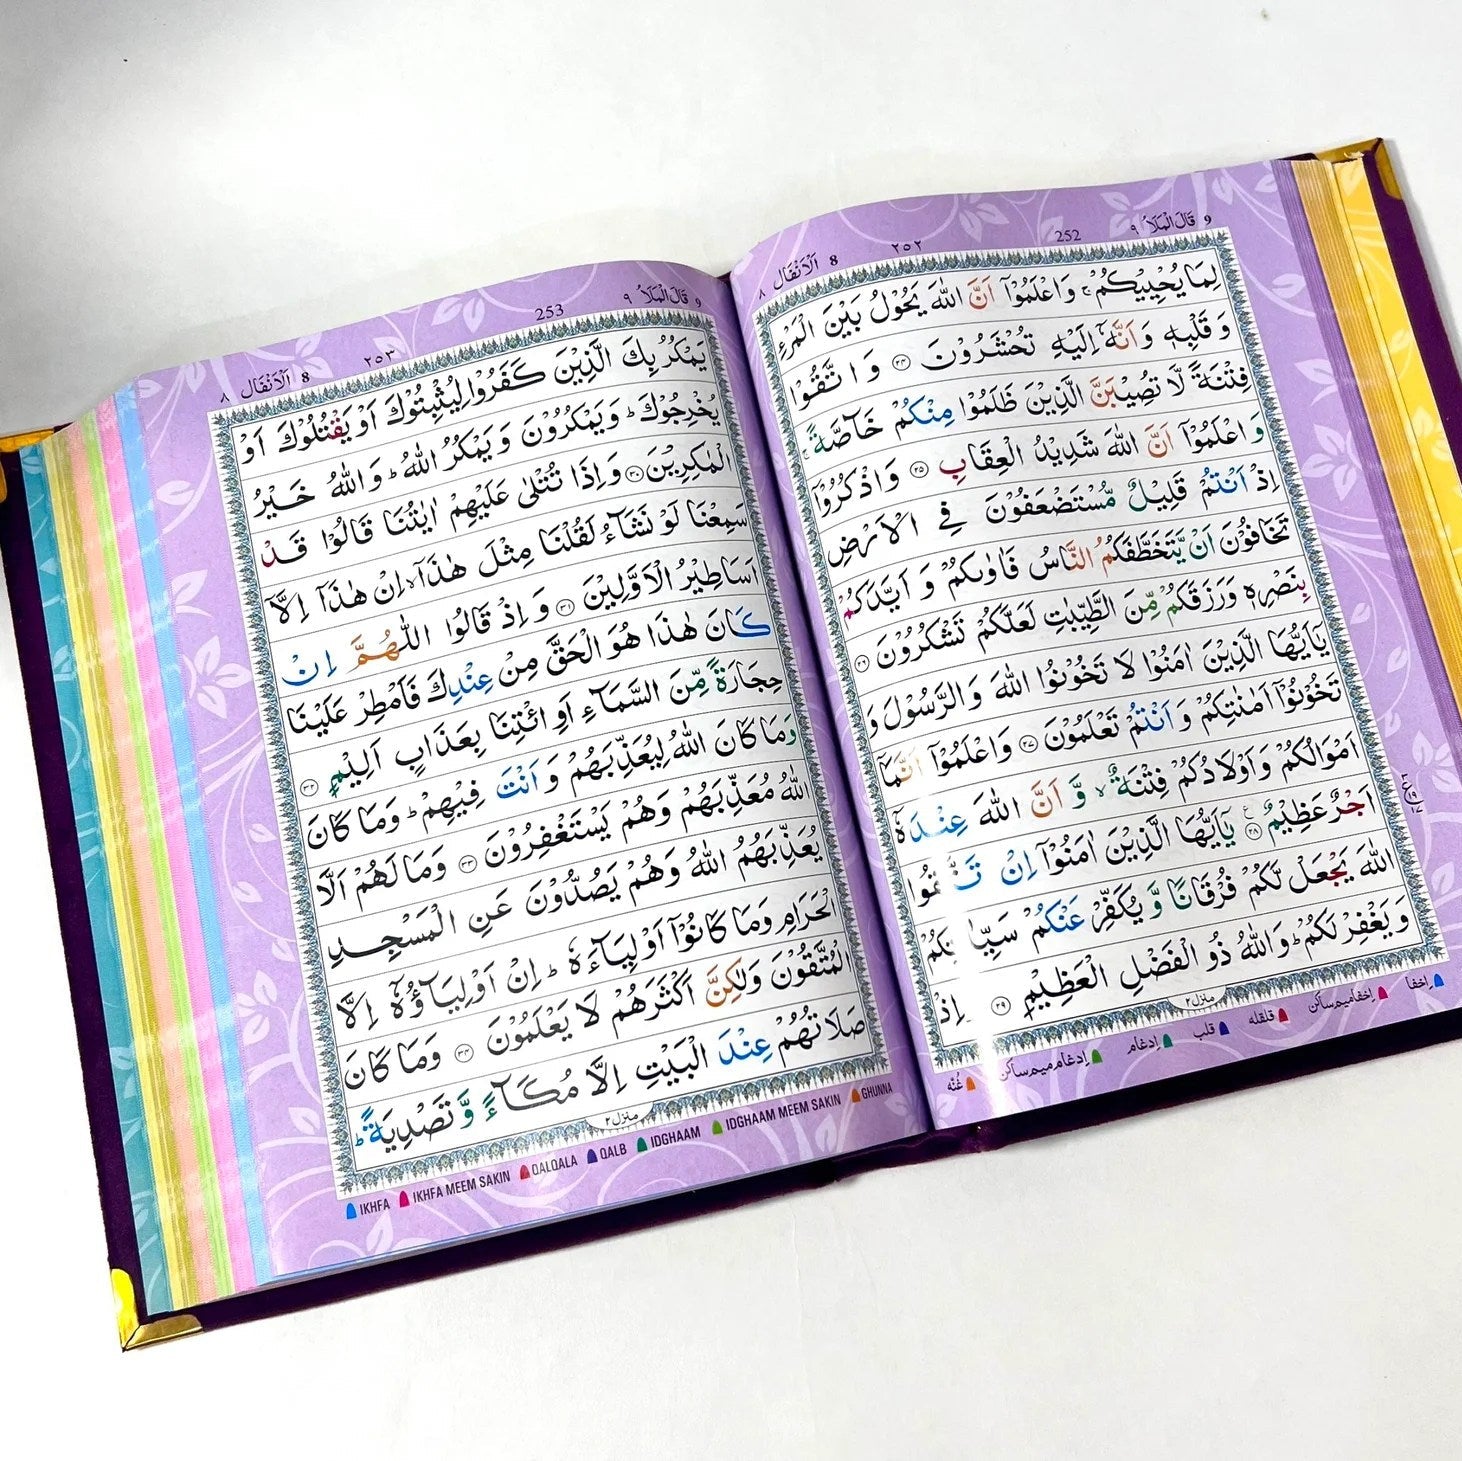 9 قَالَ الْمَلَاُ ٩
252
٢٥٢
8 اَلْاَنْفَال ٨
لِمَا يُحْيِيْكُمْ ۚ وَاعْلَمُوْۤا اَنَّ اللّٰهَ يَحُوْلُ بَيْنَ الْمَرْءِ
وَقَلْبِهٖ وَاَنَّهٗۤ اِلَيْهِ تُحْشَرُوْنَ ۝۲۴ وَاتَّقُوْا
فِتْنَةً لَّا تُصِيْبَنَّ الَّذِيْنَ ظَلَمُوْا مِنْكُمْ خَآصَّةً ۚ
وَاعْلَمُوْۤا اَنَّ اللّٰهَ شَدِيْدُ الْعِقَابِ ۝۲۵ وَاذْكُرُوْۤا
اِذْ اَنْتُمْ قَلِيْلٌ مُّسْتَضْعَفُوْنَ فِي الْاَرْضِ
تَخَافُوْنَ اَنْ يَّتَخَطَّفَكُمُ النَّاسُ فَاٰوٰىكُمْ وَاَيَّدَكُمْ
بِنَصْرِهٖ وَرَزَقَكُمْ مِّنَ الطَّيِّبٰتِ لَعَلَّكُمْ تَشْكُرُوْنَ ۝۲۶
يٰۤاَيُّهَا الَّذِيْنَ اٰمَنُوْا لَا تَخُوْنُوا اللّٰهَ وَالرَّسُوْلَ وَ
تَخُوْنُوْۤا اَمٰنٰتِكُمْ وَاَنْتُمْ تَعْلَمُوْنَ ۝۲۷ وَاعْلَمُوْۤا اَنَّمَاۤ
اَمْوَالُكُمْ وَاَوْلَادُكُمْ فِتْنَةٌ ۙ وَّاَنَّ اللّٰهَ عِنْدَهٗۤ
اَجْرٌ عَظِيْمٌ ۝۲۸ يٰۤاَيُّهَا الَّذِيْنَ اٰمَنُوْۤا اِنْ تَتَّقُوا
اللّٰهَ يَجْعَلْ لَّكُمْ فُرْقَانًا وَّيُكَفِّرْ عَنْكُمْ
وَيَغْفِرْ لَكُمْ ؕ وَاللّٰهُ ذُو الْفَضْلِ الْعَظِيْمِ ۝۲۹ وَاِذْ
منزل ٢
اِخفا
اِخفا میم ساکن
قلقله
قلب
اِدغام
اِدغام میم ساکن
غُنّه
9 قَالَ الْمَلَاُ ٩
253
٢٥٣
8 اَلْاَنْفَال ٨
يَمْكُرُ بِكَ الَّذِيْنَ كَفَرُوْا لِيُثْبِتُوْكَ اَوْ يَقْتُلُوْكَ اَوْ
يُخْرِجُوْكَ ؕ وَيَمْكُرُوْنَ وَيَمْكُرُ اللّٰهُ ؕ وَاللّٰهُ خَيْرُ
الْمٰكِرِيْنَ ۝۳۰ وَاِذَا تُتْلٰى عَلَيْهِمْ اٰيٰتُنَا قَالُوْا قَدْ
سَمِعْنَا لَوْ نَشَآءُ لَقُلْنَا مِثْلَ هٰذَاۤ ۙ اِنْ هٰذَاۤ اِلَّاۤ
اَسَاطِيْرُ الْاَوَّلِيْنَ ۝۳۱ وَاِذْ قَالُوا اللّٰهُمَّ اِنْ
كَانَ هٰذَا هُوَ الْحَقَّ مِنْ عِنْدِكَ فَاَمْطِرْ عَلَيْنَا
حِجَارَةً مِّنَ السَّمَآءِ اَوِ ائْتِنَا بِعَذَابٍ اَلِيْمٍ ۝۳۲
وَمَا كَانَ اللّٰهُ لِيُعَذِّبَهُمْ وَاَنْتَ فِيْهِمْ ؕ وَمَا كَانَ
اللّٰهُ مُعَذِّبَهُمْ وَهُمْ يَسْتَغْفِرُوْنَ ۝۳۳ وَمَا لَهُمْ اَلَّا
يُعَذِّبَهُمُ اللّٰهُ وَهُمْ يَصُدُّوْنَ عَنِ الْمَسْجِدِ
الْحَرَامِ وَمَا كَانُوْۤا اَوْلِيَآءَهٗ ؕ اِنْ اَوْلِيَآؤُهٗۤ اِلَّا
الْمُتَّقُوْنَ وَلٰكِنَّ اَكْثَرَهُمْ لَا يَعْلَمُوْنَ ۝۳۴ وَمَا كَانَ
صَلَاتُهُمْ عِنْدَ الْبَيْتِ اِلَّا مُكَآءً وَّتَصْدِيَةً ؕ
منزل ٢
IKHFA
IKHFA MEEM SAKIN
QALQALA
QALB
IDGHAAM
IDGHAAM MEEM SAKIN
GHUNNA